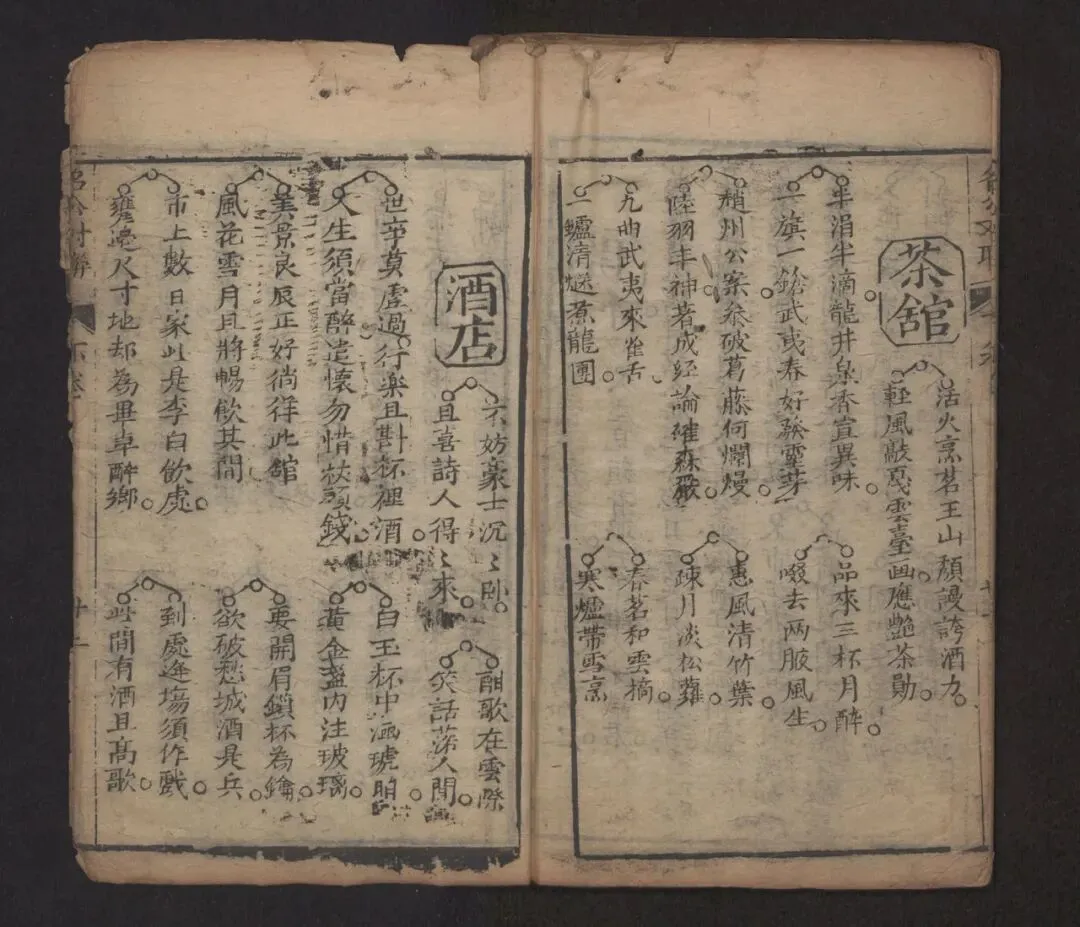 茶舘
活火烹茗玉山頹謾誇酒力
輕風敲戛雲臺画應艷茶勛
半涓半滴龍井泉香宣異味
一旗一鎗武夷春好發靈芽
品來三杯月醉
啜去两腋風生
趙州公案叅破葛藤何爛熳
陸羽丰神著成經論確森嚴
惠風清竹葉
疎月淡松蘿
九曲武夷來雀舌
一鑪清燧煮龍團
春茗和雲摘
寒爐帶雪烹
酒店
不妨豪士沉〻卧
且喜詩人得〻來
酣歌在雲際
笑話落人間
世事莫虛過行樂且斟杯裡酒
人生須當醉遣懷勿惜杖頭錢
白玉杯中涵琥珀
黃金盞内注玻璃
美景良辰正好徜徉此舘
風花雪月且將暢飲其間
要開眉鎖杯為鑰
欲破愁城酒是兵
市上數日家此是李白飲處
甕邊尺寸地却為畢卓醉鄉
到處逢塲須作戲
此間有酒且高歌
下卷
廿二